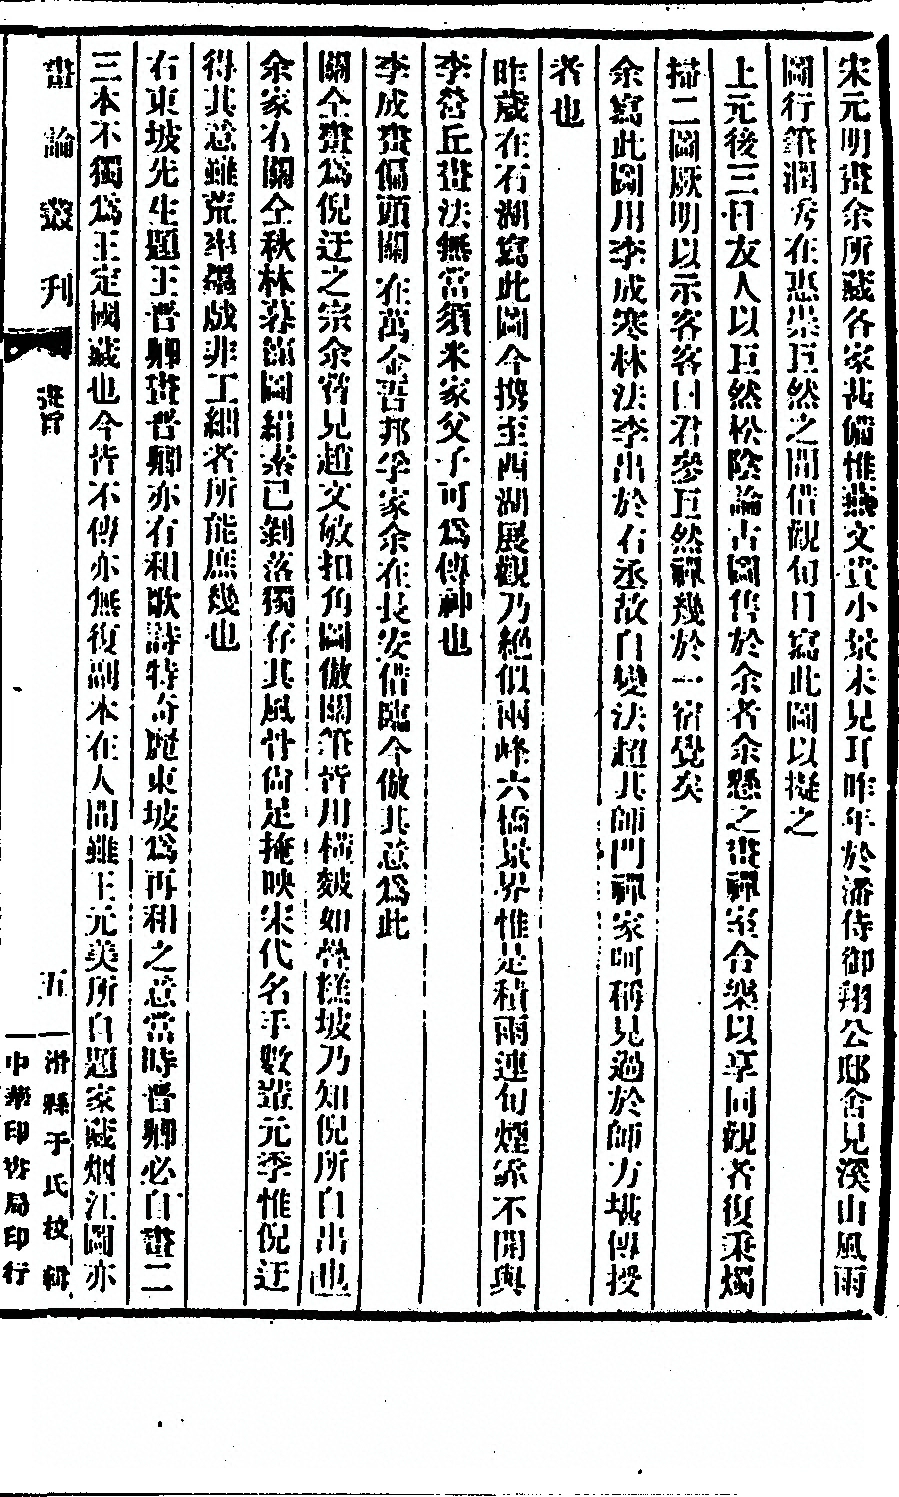 宋元明畫余所藏各家甚備惟燕文貴小景未見耳昨年於潘侍御翔公邸舍見溪山風雨
圖行筆潤秀在惠崇巨然之間借觀旬日寫此圖以擬之
上元後三日友人以巨然松陰論古圖售於余者余懸之畫禪室合樂以享同觀者復秉燭
掃二圖厥明以示客客曰君參巨然禪幾於一宿覺矣
余寫此圖用李成寒林法李出於右丞故自變法超其師門禪家呵稱見過於師方堪傳授
者也
昨歲在石湖寫此圖今攜至西湖展觀乃絕似兩峰六橋景界惟是積雨連旬煙霏不開與
李營丘畫法無當須米家父子可爲傳神也
李成畫偏頭關在萬金吾邦孚家余在長安借臨今倣其意爲此
關仝畫爲倪迂之宗余嘗見趙文敏扣角圖倣關筆皆用橫皴如疊糕坡乃知倪所自出也
余家有關仝秋林暮靄圖絹素已剝落獨存其風骨尚足掩映宋代名手數輩元季惟倪迂
得其意雖荒率墨戲非工細者所能庶幾也
右東坡先生題王晉卿畫晉卿亦有和歌詩特奇麗東坡爲再和之意當時晉卿必自畫二
三本不獨爲王定國藏也今皆不傳亦無復副本在人間雖王元美所自題家藏烟江圖亦
畫論叢刊
畫旨
五
滑縣于氏校輯
中華印書局印行